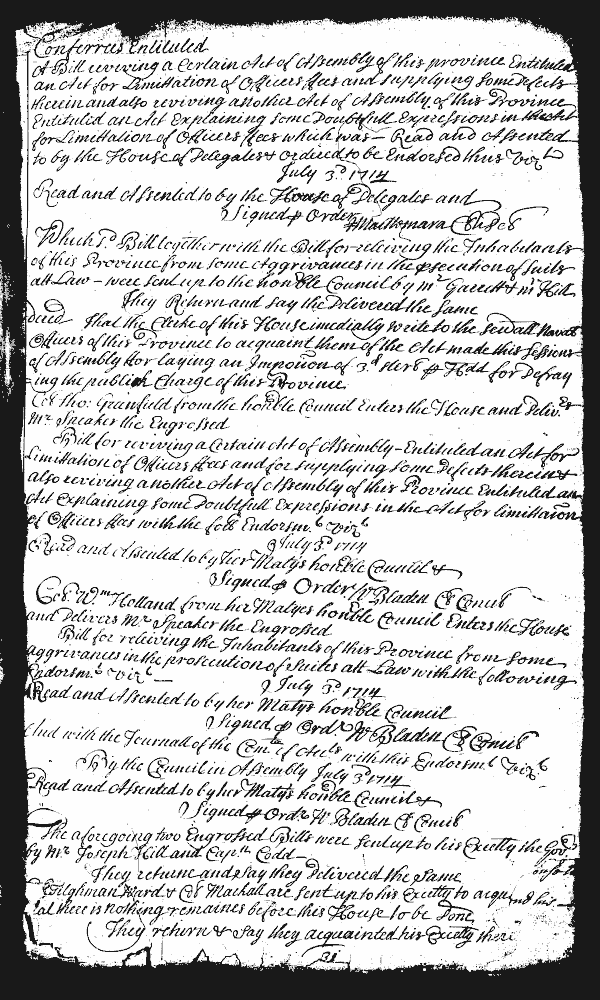 Conferrees Entituled
A Bill reviving a Certain Act of Assembly of this province Entituled
an Act for Limittation of Officers ffees and supplying some defects
therein and also reviving another Act of Assembly of this Province
Entituled an Act Explaining some Doubtfull Expressions in the Act
for Limittation of Officers ffees which was — Read and Assented
to by the House of Delegates & ordered to be Endorsed thus Vizt
July 3d 1714
Read and Assented to by the House of Delegates and
Signed p Order Macknemara Cl
Which sd Bill together with the Bill for releiving the Inhabitants
of this Province from some Aggrivances in the psecution of suits
att Law — were sent up to the honble Council by mr Garett & mr Hill
They Return and say the Delivered the same
dered That the Clerke of this House imediatly write to the sevall Navall
Officers of this Province to acquaint them of the Act made this Sessions
of Assembly ffor laying an Impotion of 3d ster p Hhd for Defray
=ing the publick Charge of this Province
Col Tho: Grinfield from the honble Council Enters the House and Delivers
Mr Speaker the Engrossed
Bill for reviving a Certain Act of Assembly — Entituled an Act for
Limittation of Officers ffees and for supplying some Defects therein &
also reviving another Act of Assembly of this Province Entituled an
Act Explaining some Doubtfull Expressions in the Act for limittation
of Officers ffees with the foll Endorsmt Vizt
July 3d 1714
Read and Assented to by her Matys honble Council &
Signed p Order W Bladen Cl Concil
Col Wm Holland from her Matyes honble Council Enters the House
and Delivers Mr Speaker the Engrossed
Bill for releiving the Inhabitants of this Province from some
aggrivances in the prosecution of Suites att Law with the following
Endorsmt Vizt —
July 3d 1714
Read and Assented to by her Matys honble Council
Signed p Ordr W Bladen Cl Concil
And with the Journall of the Comte of Accts with this Endorsmt Vizt
By the Council in Assembly July 3d 1714
Read and Assented to by her Matys honble Council &
Signed p Ordr W Bladen Cl Concil
The aforegoing two Engrossed Bills were sent up to his Exctty the Govr
by Mr Joseph Hill and Capth Codd —
They returne and say they Delivered the same
Tilghman Ward & Col Mackall are sent up to his Exctty to acqu
al there is nothing remaines before this House to be Done
They return & say they acquainted his Exctty there